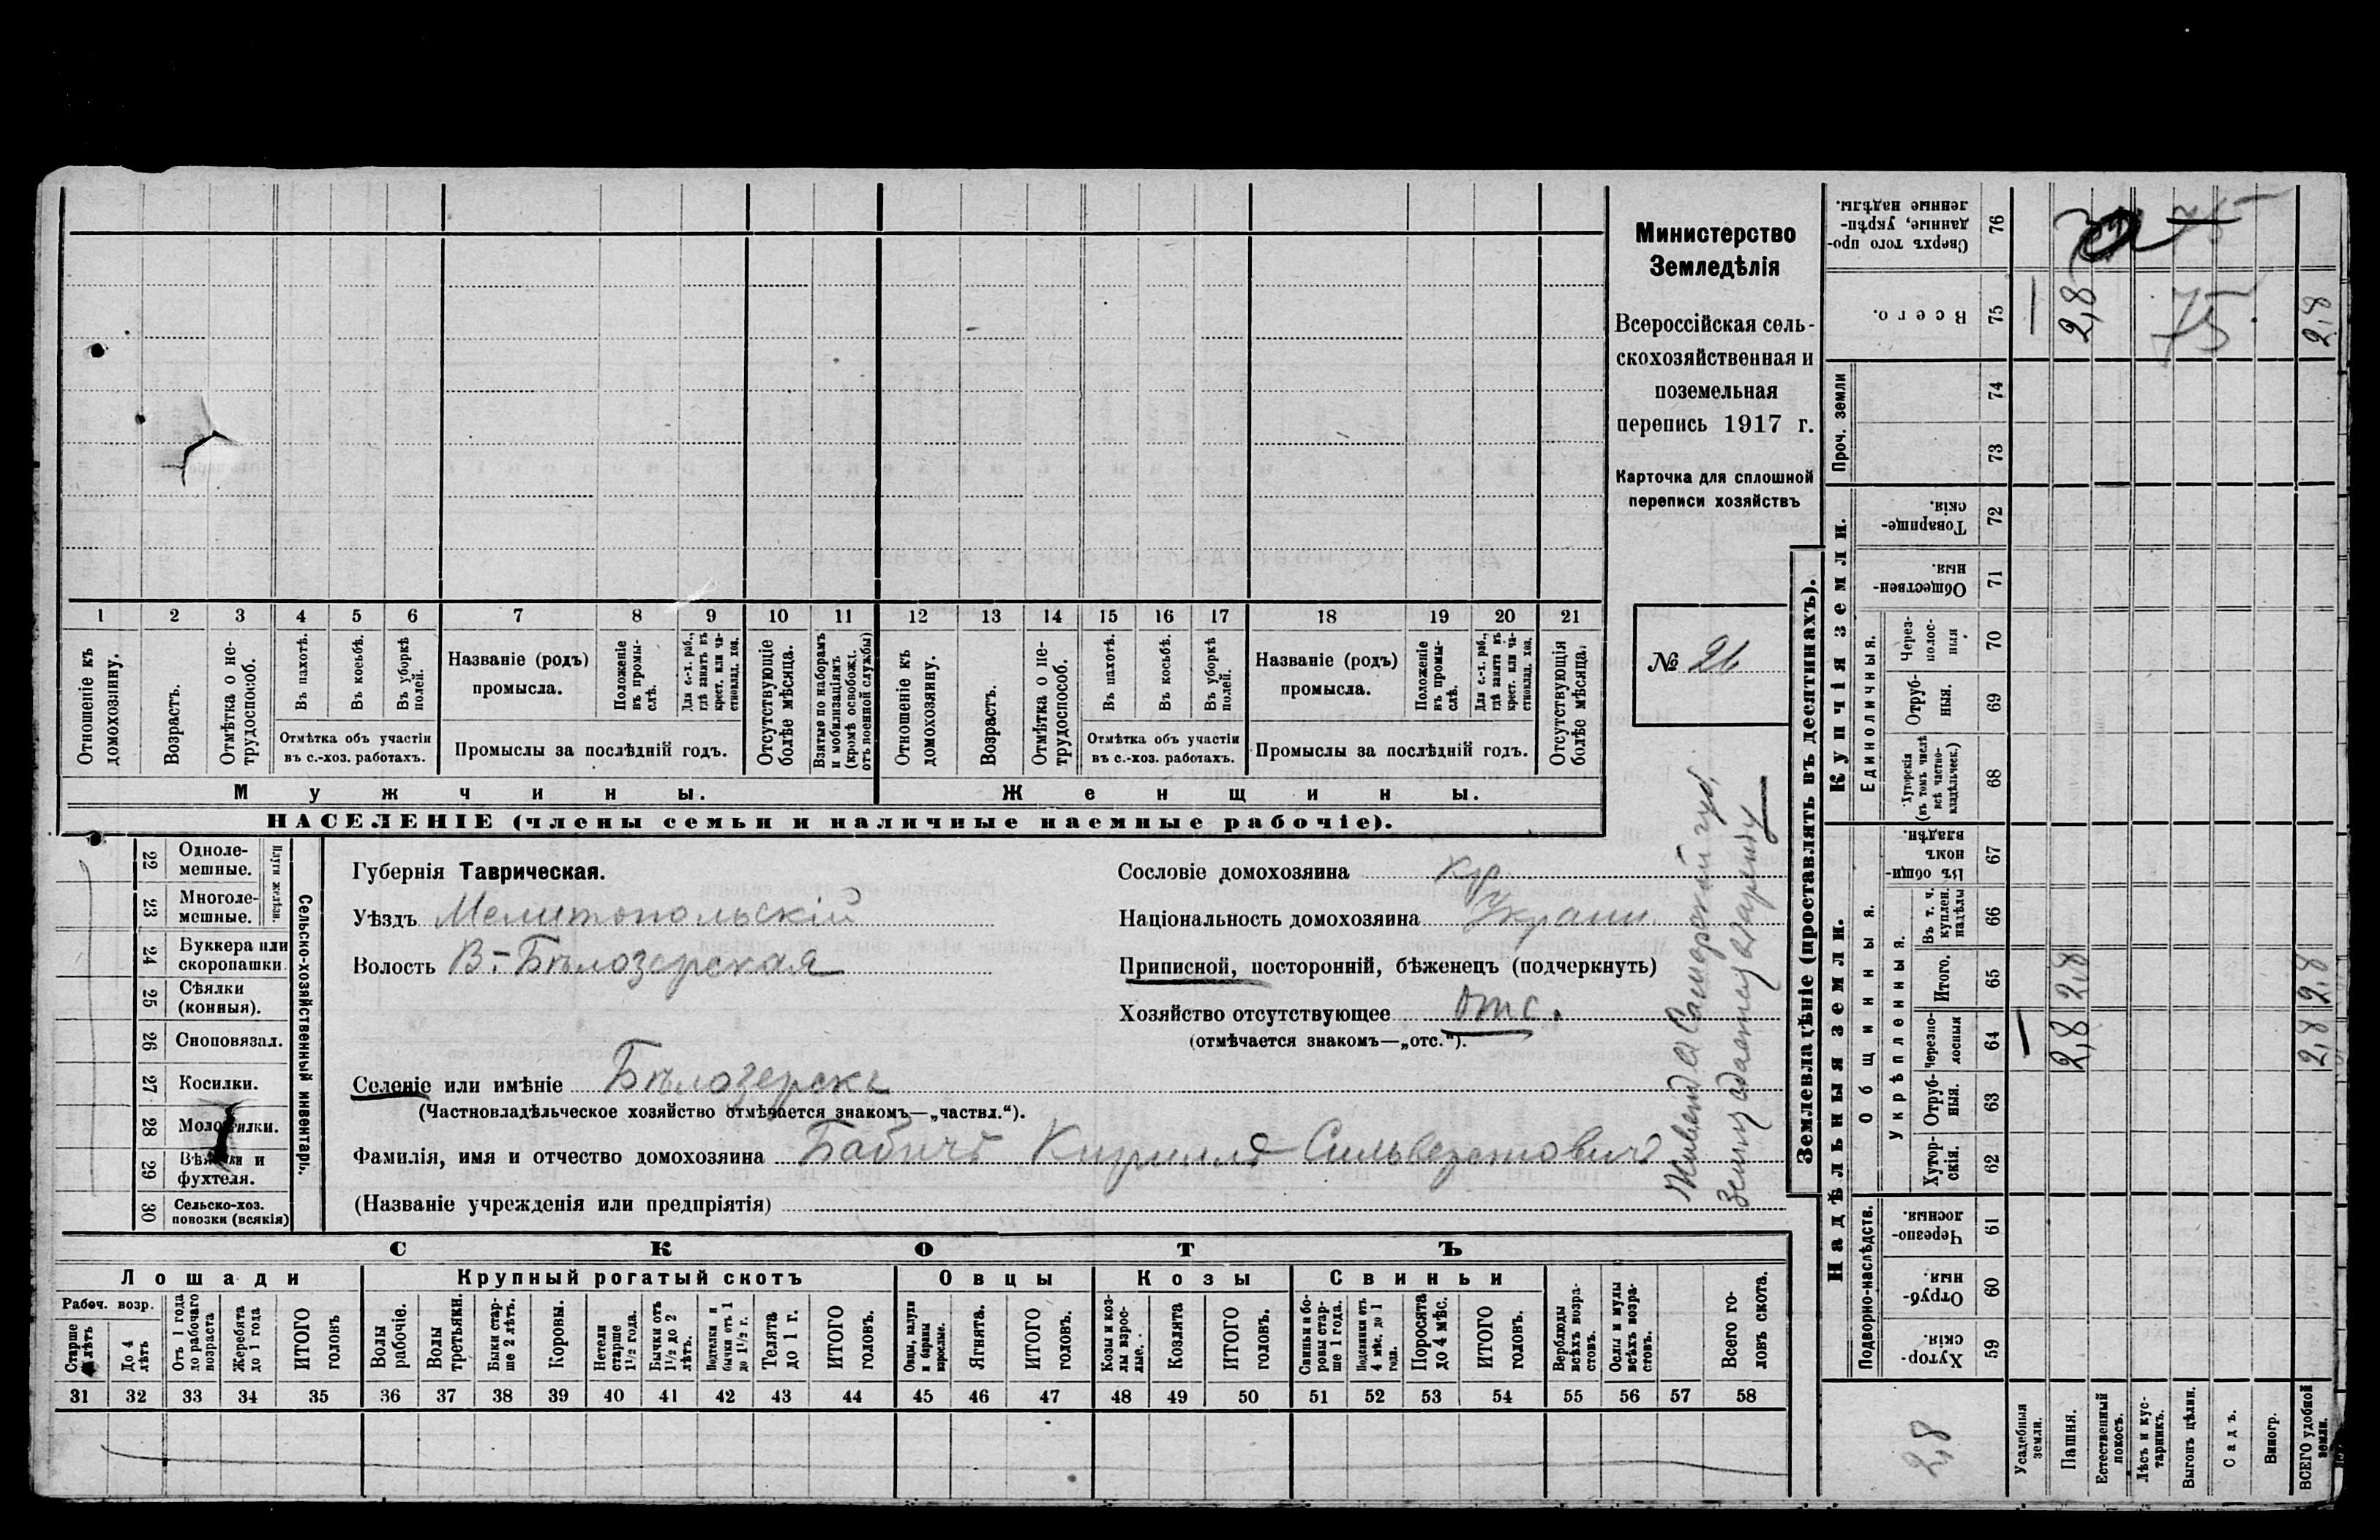 1 2 3 4 5 6 7 8 9 10 11 12 13 14 15 16 17 18 19 20 21
Отношеніе къ домохозяину.
Возрастъ.
Отмѣтка о не-
трудоспособ.
Въ пахотѣ.
Въ косьбѣ.
Въ уборкѣ полей.
Отмѣтка объ участіи
въ с.-хоз. работахъ.
Названіе (родъ)
промысла.
Положеніе въ промы-
слѣ.
Для с.-х. раб., гдѣ занятъ въ крест. или ча-
стновлад. хоз.
Промыслы за послѣдній годъ.
Отсутствующіе болѣе мѣсяца.
Взятые по наборамъ и мобилизаціямъ (кромѣ освобожд. отъ военной службы)
Отношеніе къ домохозяину.
Возрастъ.
Отмѣтка о не-
трудоспособ.
Въ пахотѣ.
Въ косьбѣ.
Въ уборкѣ полей.
Отмѣтка объ участіи
въ с.-хоз. работахъ.
Названіе (родъ)
промысла.
Положеніе въ промы-
слѣ.
Для с.-х. раб., гдѣ занята въ крест. или ча-
стновлад. хоз.
Промыслы за послѣдній годъ.
Отсутствующія болѣе мѣсяца.
Мужчины.
Женщины.
НАСЕЛЕНІЕ (члены семьи и наличные наемные рабочіе).
Министерство
Земледѣлія
Всероссійская сель-
скохозяйственная и
поземельная
перепись 1917 г.
Карточка для сплошной
переписи хозяйствъ
№ 26
22 Одноле-
мешные.
23 Многоле-
мешные.
Плуги желѣзн.
24 Буккера или
скоропашки.
25 Сѣялки
(конныя).
26 Сноповязал.
27 Косилки.
28 Молотилки.
29 Вѣялки и
фухтеля.
30 Сельско-хоз.
повозки (всякія)
Сельско-хозяйственный инвентарь.
Губернія Таврическая.
Уѣздъ Мелитопольскій
Волость В.-Бѣлозерская
Селеніе или имѣніе Бѣлозерка
(Частновладѣльческое хозяйство отмѣчается знакомъ—„частвл.“).
Фамилія, имя и отчество домохозяина Бабичъ Кириллъ Сильверстович
(Названіе учрежденія или предпріятія)
Сословіе домохозяина кр.
Національность домохозяина Украин.
Приписной, посторонній, бѣженецъ (подчеркнуть)
Хозяйство отсутствующее отс.
(отмѣчается знакомъ—„отс.“).
Живет в Самарской губ,
Землу сдает в аренду
СКОТЪ
Лошади
Крупный рогатый скотъ
Овцы
Козы
Свиньи
Рабоч. возр.
Старше 4 лѣтъ
До 4 лѣтъ
Отъ 1 года до рабочаго возраста
Жеребята до 1 года
ИТОГО головъ
Волы рабочіе.
Волы третьяки.
Быки стар-
ше 2 лѣтъ.
Коровы.
Нетели старше 1½ года.
Бычки отъ 1½ до 2 лѣтъ.
Подтелки и бычки отъ 1 до 1½ г.
Телята до 1 г.
ИТОГО головъ.
Овцы, валухи и бараны взрослые.
Ягнята.
ИТОГО головъ.
Козы и коз-
лы взрос-
лые.
Козлята
ИТОГО головъ.
Свиньи и бо-
ровы стар-
ше 1 года.
Подсвинки отъ 4 мѣс. до 1 года.
Поросята до 4 мѣс.
ИТОГО головъ.
Верблюды всѣхъ возра-
стовъ.
Ослы и мулы всѣхъ возра-
стовъ.
Всего го-
ловъ скота.
31 32 33 34 35 36 37 38 39 40 41 42 43 44 45 46 47 48 49 50 51 52 53 54 55 56 57 58
Землевладѣніе (проставлять въ десятинахъ).
Надѣльныя земли.
Купчія земли.
Проч. земли
Подворно-наслѣдств.
Общинныя.
Укрѣпленныя.
Единоличныя.
Сверхъ того про-
данные, укрѣп-
ленные надѣлы. 76
Всего. 75
74
73
Товарище-
скія. 72
Обществен-
ныя. 71
Через-
полос-
ныя 70
Отруб-
ныя. 69
Хуторскія (въ томъ числѣ всѣ частно-
владѣльческ.) 68
Въ общин-
номъ владѣн. 67
Въ т. ч. куплен. надѣлы 66
Итого. 65
Черезпо-
лосныя 64
Отруб-
ныя. 63
Хутор-
скія. 62
Черезпо-
лосныя. 61
Отруб-
ныя. 60
Хутор-
скія. 59
Усадебныя земли.
Пашня.
Естественный покосъ.
Лѣсъ и кус-
тарникъ.
Выгонъ цѣлин.
Садъ.
Виногр.
ВСЕГО удобной земли.
75
2,8
75
2,8
2,8
2,8
2,8
2,8
2,8